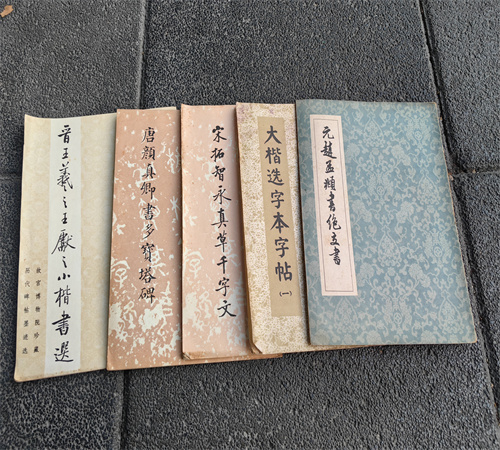 晋王羲之王獻之小楷書選
故宫博物院珍藏
历代碑帖墨迹选
唐顏真卿書多寶塔碑
宋拓智永真草千字文
大楷选字本字帖(一)
元趙孟頫書絕交書